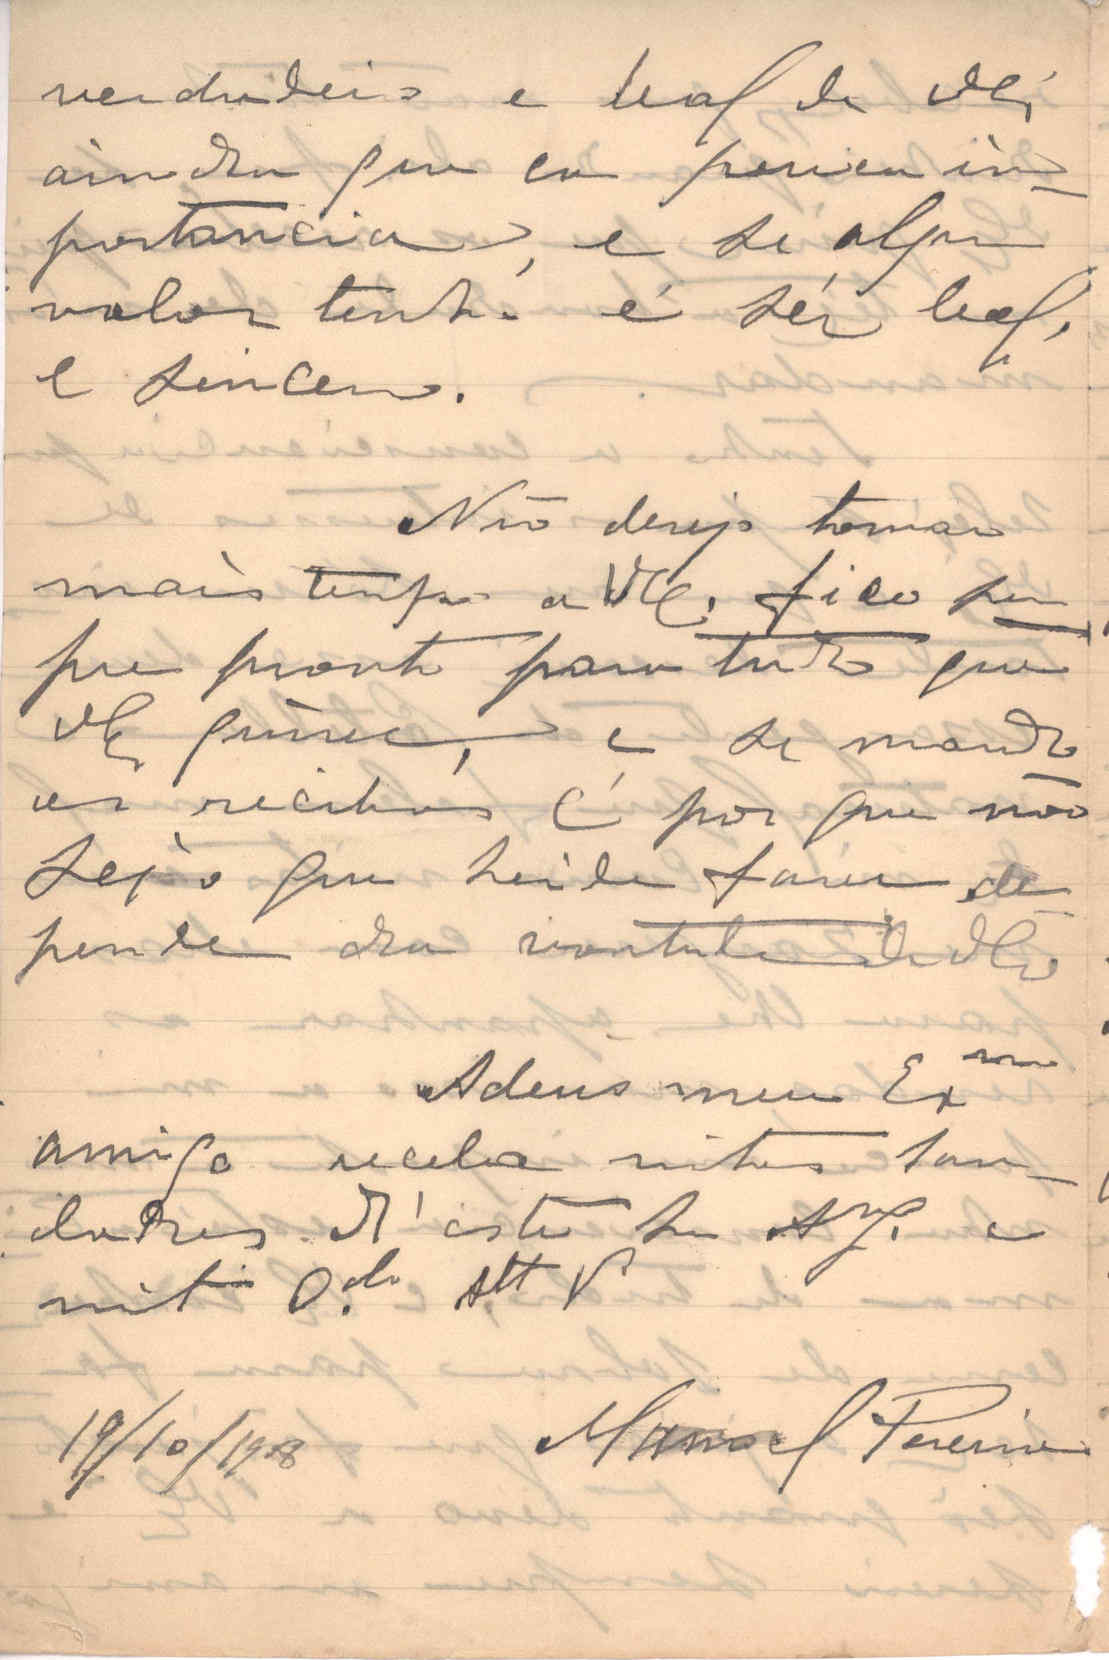 verdadeiro e leal de VEx
ainda que com pouca im-
portancia, e se algum
valor tenho é sér leal,
e sincero.
Não desejo tomar
mais tempo a VEx. fico sem
pre pronto para tudo que
VEx queira, e se mando
os recibos é por que não
sei o que heide fazer de-
pende da vontade de VEx
Adeus meu Exmo
amigo receba mtas sau-
dades d'este seu Amg. e
mto O.do Att V
19/10/1908 Manoel Pereira